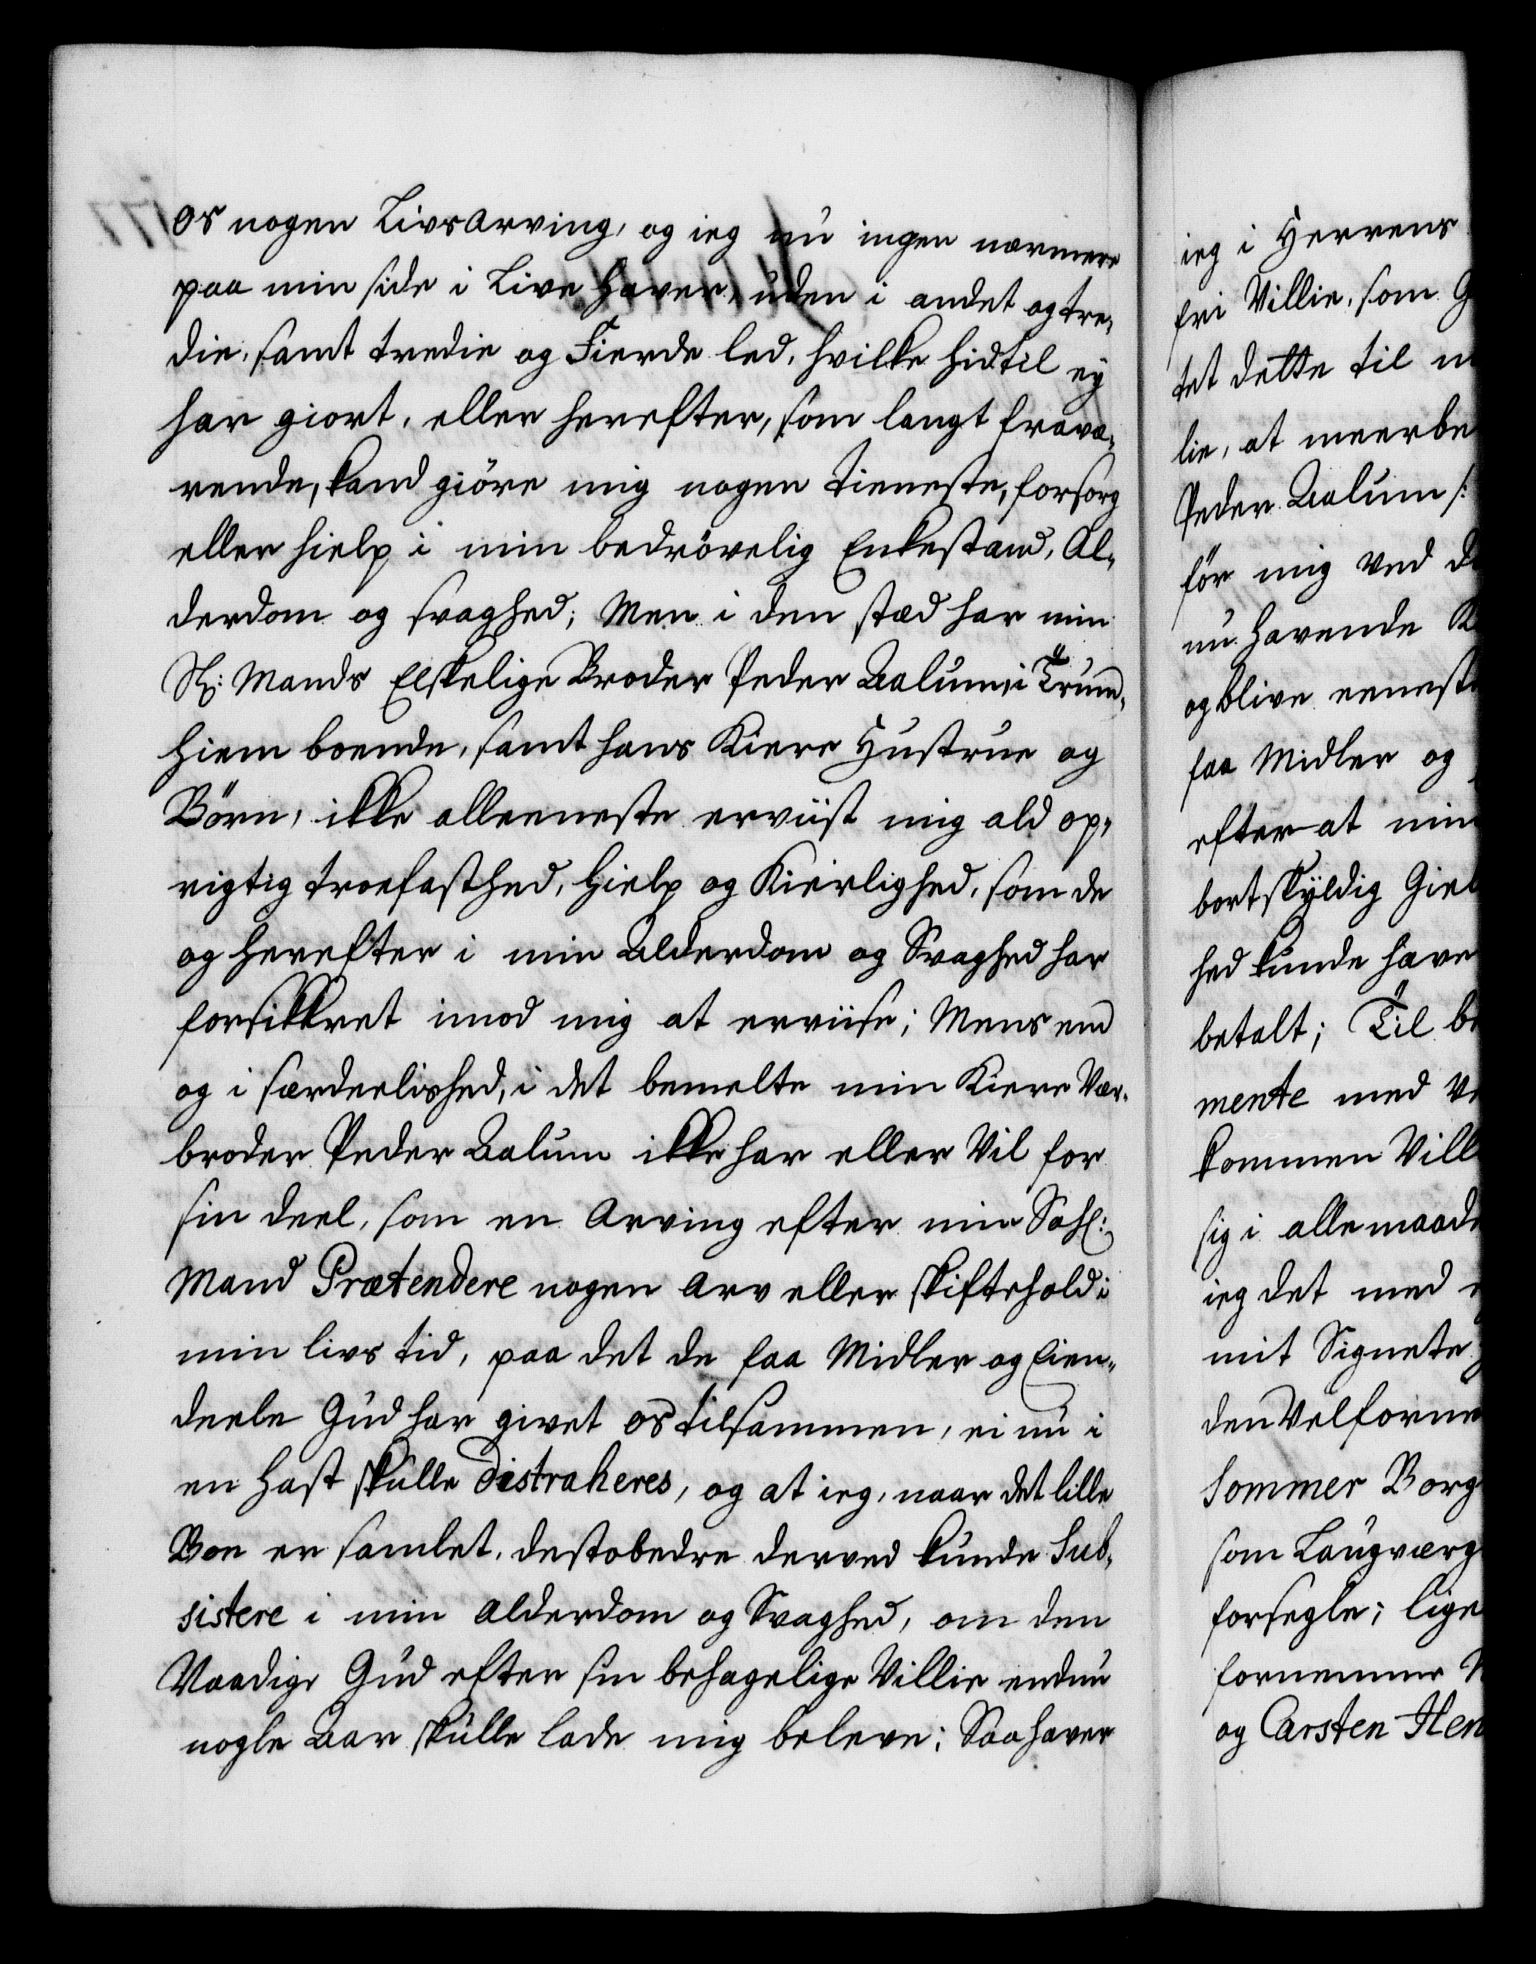 os nogen Livs Arving, og ieg nu ingen nærmere
paa min side i Live haver, uden i andet og tre-
die, samt tredie og Fierde led, hvilke hidtil ey
har giort, eller herefter, som langt fravæ-
rende, kand giöre mig nogen tieneste, forsorg
eller hielp i min bedrövelig Enkestand, Al-
derdom og svaghed; Men i den stæd har min
Sl: Mands Elskelige Broder Peder Aalum i Trund-
hiem boende, samt hans Kiere Hustrue og
Börn, ikke alleeneste erviist mig ald op-
rigtig troefasthed, hielp og Kierlighed, som de
og herefter i min Alderdom og Svaghed har
forsikkret imod mig at erviise; Mens end
og i særdeelished, i det bemelte min Kiere Vær-
broder Peder Aalum ikke har eller Vil for
sin deel, som en Arving efter min Sahl:
Mand Prætendere nogen Arv eller skiftehold i
min livs tid, paa det de faa Midler og Eien-
deele Gud har givet os tilsammen, ei nu i
en hast skulle distraheres, og at ieg, naar det lille
Boe er samlet, destobedre derved kunde Sub-
sistere i min Alderdom og Svaghed, om den
Naadige Gud efter sin behagelige Villie endnu
nogle Aar skulle lade mig beleve; Saa haver
ieg i Herrens
fri Villie, som
tet dette til
lie, at meerbe
Peder Aalum /:
för mig ved
nu havende
og blive eeneste
faa Midler og
efter at min
bortskyldig Giel
hed kunde have
betalt; Til be
mente med
kommen Vill
sig i alle maade
ieg det med
mit Signete
den Velforne
Sommer Borg
som Laugværg
forsegle; lige
fornemme
og Carsten Hen